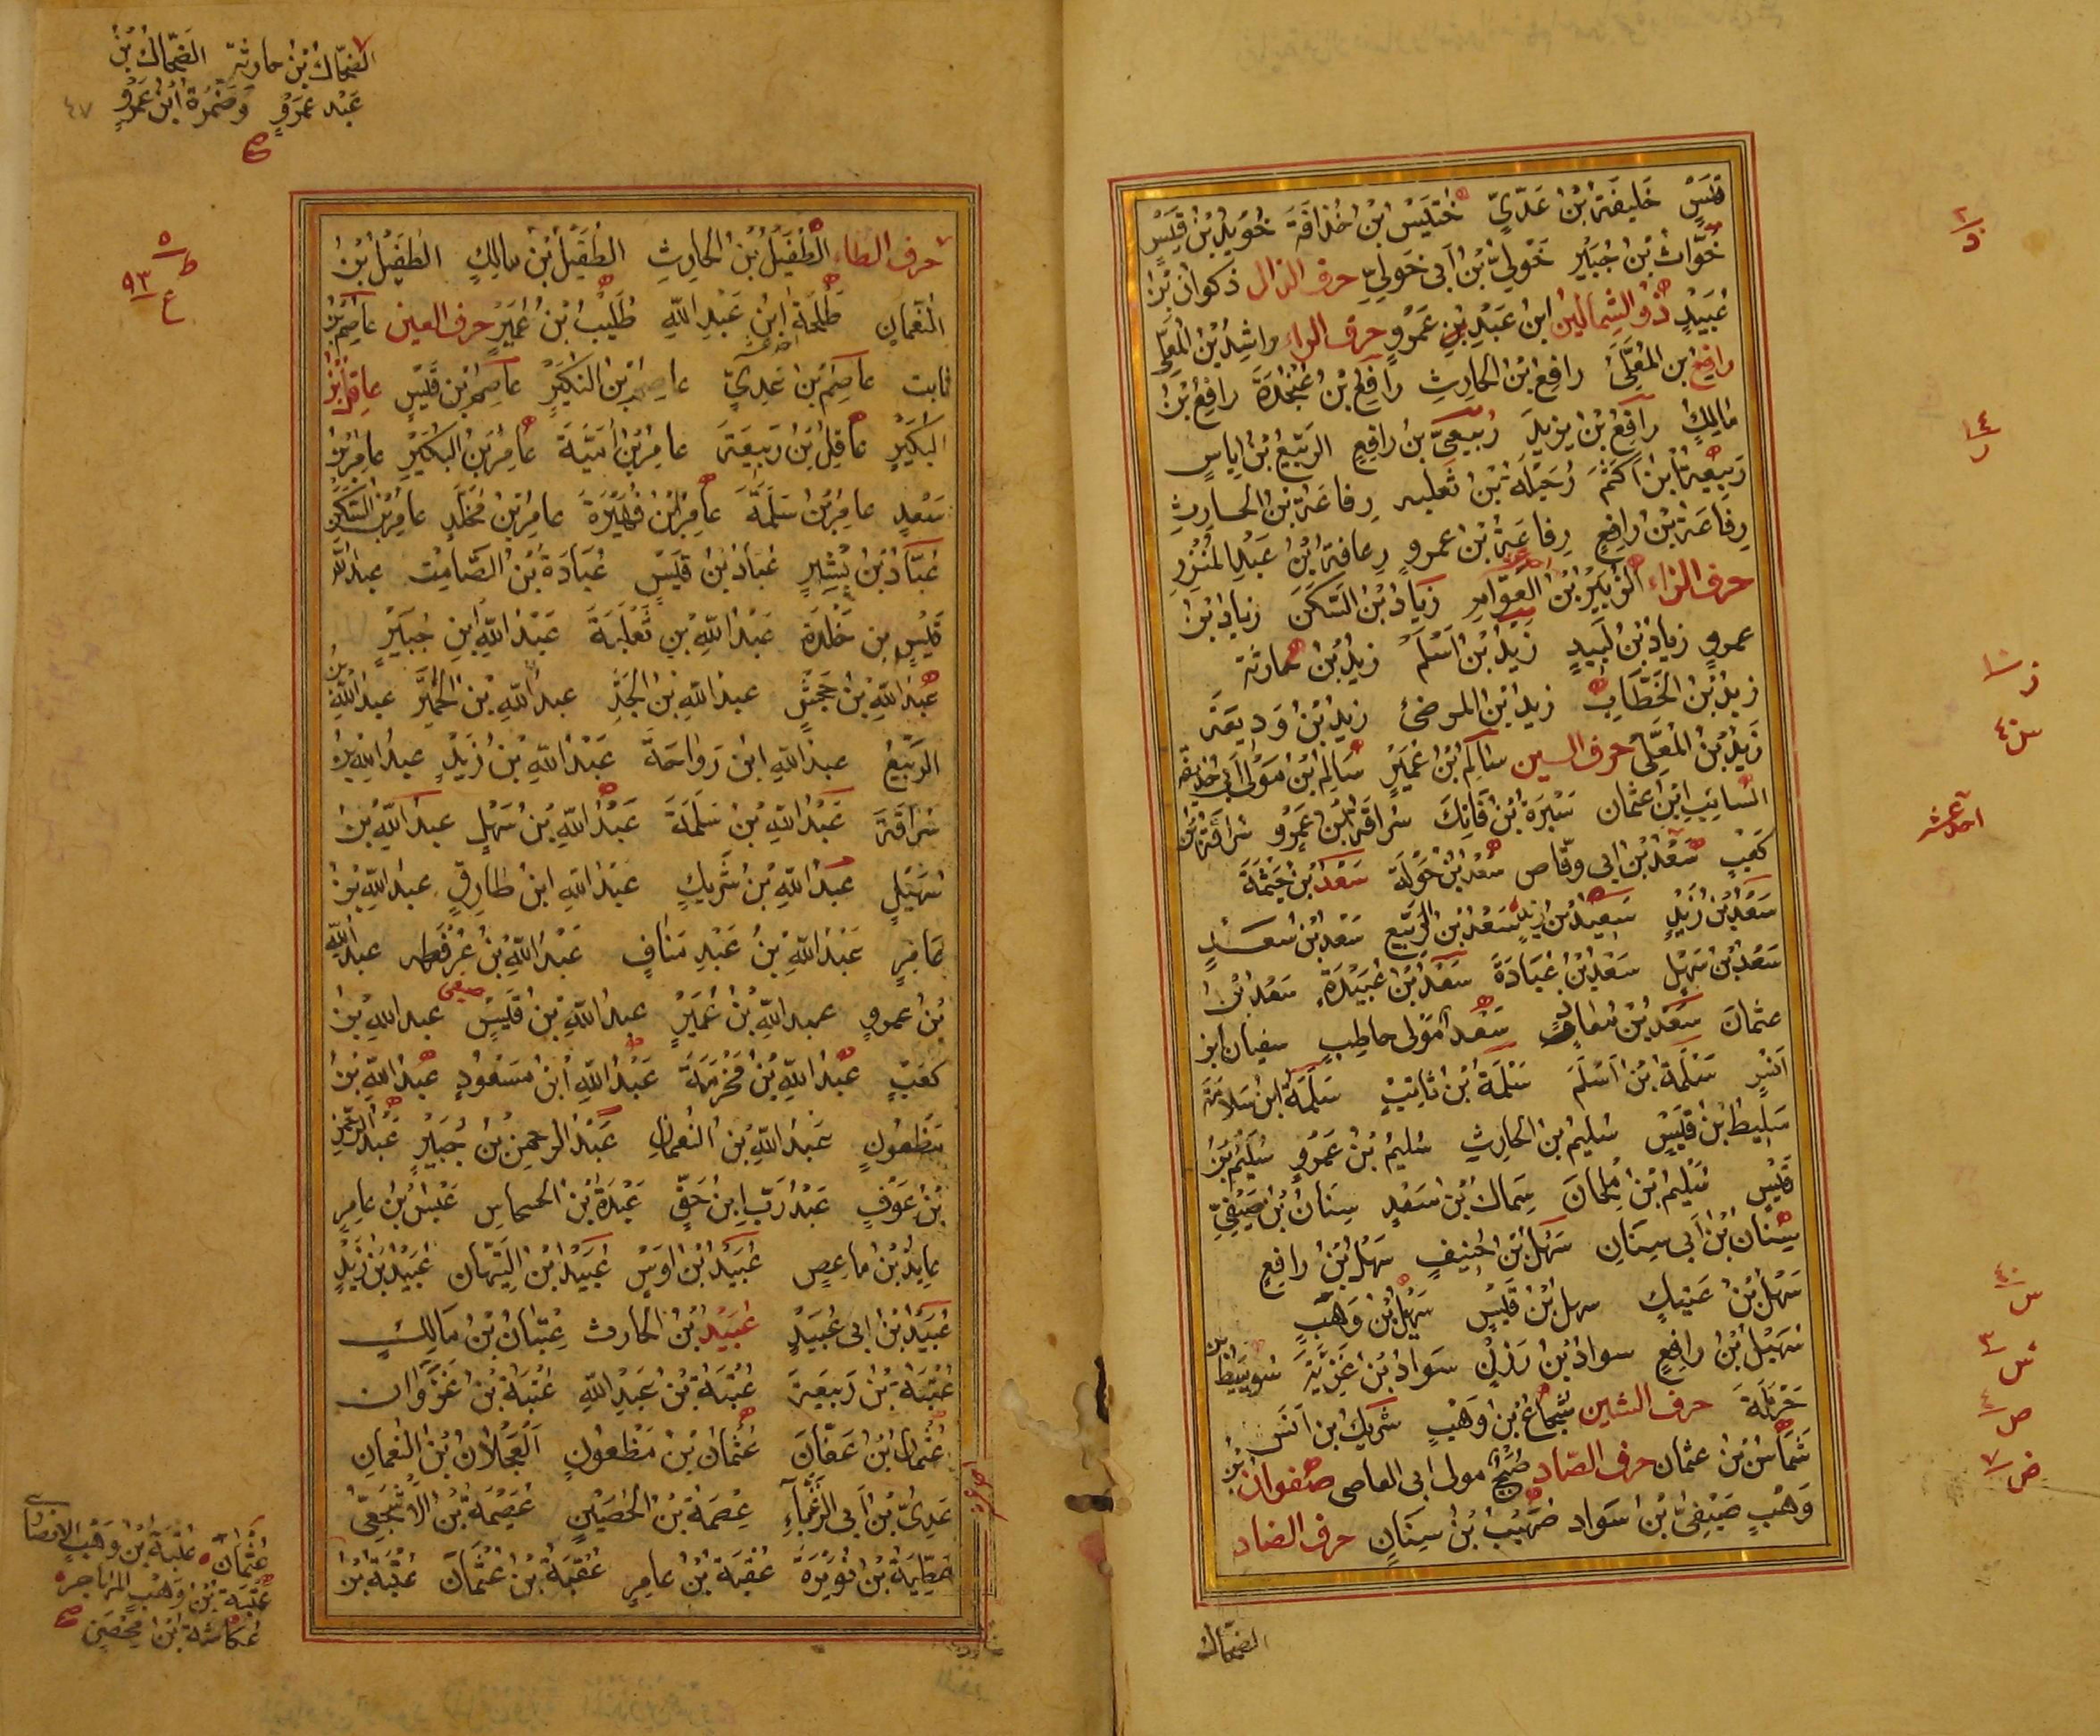 قَيْسٍ خَلِيفَةُ بْنُ عَدِيٍّ خُنَيْسُ ابْنُ حُذَافَةَ خُوَيْلِدُ بْنُ قَيْسٍ
خَوَّاتُ بْنُ جُبَيْرٍ خَوْلِيُّ بْنُ أَبِي خَوْلِيٍّ حرف الذال ذكوان بْنُ
عُبَيْدٍ ذُو الشِّمَالَيْنِ ابْنُ عَبْدِ بْنِ عَمْرٍو حرف الراء رَاشِدُ بْنُ الْمُعَلَّى
رَافِعُ بن الْمُعَلَّى رَافِعُ بْنُ الْحَارِثِ رَافِعُ بْنُ عُنْجُدَةَ رَافِعُ بْنُ
مَالِكٍ رَافِعُ بْنُ يَزِيدَ رِبْعِيُّ بْنُ رَافِعٍ الرَّبِيعُ بْنُ إِيَاسٍ
رَبِيعَةُ بْنُ أَكْثَمَ رُخَيْلَةُ بْنُ ثَعْلَبَه رِفَاعَةُ بْنُ الحارثِ
رِفَاعَةُ بْنُ رَافِعٍ رِفَاعَةُ بْنُ عمروٍ رِفَاعَةُ بْنُ عَبْدِ الْمُنْذِرِ
حرف الزاء الزُّبَيْرُ بْنُ الْعَوَّامِ زِيَادُ بْنُ السَّكَنِ زِيَادُ بْنُ
عمروٍ زِيَادُ بْنُ لَبِيدٍ زَيْدُ بْنُ أَسْلَمَ زَيْدُ بْنُ حَارِثَة
زَيْدُ بْنُ الْخَطَّابِ زَيْدُ بْنُ الْمُزَيْنِ زَيْدُ بْنُ وَدِيعَةَ
زَيْدُ بْنُ الْمُعَلَّى حرف السين سَالِمُ بْنُ عُمَيْرٍ سَالِمُ بْنُ مَوْلَى أَبِي حُذَيْفَة
السَّائِبُ ابْنُ عُثْمَانَ سَبْرَةُ بْنُ فَاتِكَ سُرَاقَةُ بْنُ عَمْرٍو سُرَاقَةُ بْنُ
كَعْبٍ سَعْدُ بْنُ أبي وقّاص سَعْدُ بْنُ خَوْلَةَ سَعْدُ بْنُ خَيْثَمَةَ
سَعْدُ بْنُ زَيْدٍ سَعِيدُ بْنُ زَيْدٍ سَعْدُ بْنُ الرَّبِيعِ سَعْدُ بْنُ سَعْدٍ
سَعْدُ بْنُ سُهَيْلٍ سَعْدُ بْنُ عُبَادَةَ سَعْدُ بْنُ عُبَيْدَةَ سَعْدُ بْنُ
عثمان سَعْدُ بْنُ مُعَاذٍ سَعْدُ مَوْلَى حَاطِبٍ سفيان ابن
سَلَمَةُ بْنُ أَسْلَمَ سَلَمَةُ بْنُ ثَابِتٍ سَلَمَةُ ابْنُ سَلَامَةَ
سَلِيطُ بْنُ قَيْسٍ سُلَيْمُ بْنُ الْحَارِثِ سُلَيْمُ بْنُ عَمْرٍو سُلَيْمُ بْنُ
قَيْسٍ سُلَيْمُ بْنُ مِلْحَانَ سِمَاكُ بْنُ سَعْدٍ سِنَانُ بْنُ صَيْفِيٍّ
سِنَانُ بْنُ أَبِي سِنَانٍ سَهْلُ بْنُ حُنَيْفٍ سَهْلُ بْنُ رَافِعٍ
سَهْلُ بْنُ عَتِيكٍ سهل بْنُ قَيْسٍ سُهَيْلُ بْنُ وَهْبٍ
سُهَيْلُ بْنُ رَافِعٍ سَوَادُ بْنُ رَزْنٍ سَوَادُ بْنُ غَزِيَّةَ سُوَيْبِطُ بْن
حَرْمَلَةَ حرف الشين شُجَاعُ بْنُ وَهْبٍ شَرِيكُ بْنُ أَنَسٍ
شَمَّاسُ بْنُ عثمان حرف الصّاد صُبَيْحٌ مولى أبي العاصى صفوان بْنُ
وَهْبٍ صَيْفِيُّ بْنُ سَوَادٍ صُهَيْبُ بْنُ سِنَانٍ حرف الضاد
الضحّاك
احد عشر
الضحّاك بْنُ حارثة الضحّاكُ بْنُ
عَبْدِ عَمْرٍو وَضَمْرَةُ ابْنُ عَمْرٍو
صح
٤٧
حرف الطاء الطُّفَيْلُ بْنُ الْحَارِثِ الطُّفَيْلُ بْنُ مَالِكٍ الطُّفَيْلُ بْنُ
النُّعْمَانِ طَلْحَةُ ابْنُ عَبْدِ اللّٰهِ طُلَيْبُ بْنُ عُمَيْرٍ حرف العين عَاصِمُ بْنُ
ثابت عَاصِمُ بْنُ عَدِيٍّ عَاصِمُ بْنُ الْعُكَيْرِ عَاصِمُ بْنُ قَيْسٍ عَاقِلُ بْنُ
الْبُكَيْرِ عَاقِلُ بْنُ رَبِيعَةَ عَامِرُ بْنُ أُمَيَّةَ عَامِرُ بْنُ الْبُكَيْرِ عَامِرُ بْنُ
سَعْدٍ عَامِرُ بْنُ سَلَمَةَ عَامِرُ بْنُ فُهَيْرَةَ عَامِرُ بْنُ مُخَلَّدٍ عَامِرُ بْنُ السَّكَنِ
عَبَّادُ بْنُ بِشْرٍ عَبَّادُ بْنُ قَيْسٍ عُبَادَةُ بْنُ الصَّامِتِ عبد اللّٰه
قَيْسٍ بن خَلْدَةَ عَبْدُ اللّٰهِ بْنِ ثَعْلَبَةَ عَبْدُ اللّٰهِ ابْنِ جُبَيْرٍ
عَبْدُ اللّٰهِ بْنُ جَحْشٍ عبد اللّٰهِ بْنُ الْجَدِّ عبد اللّٰهِ بْنُ الْحُمَيِّرِ عبد اللّٰهِ بْنُ
الرَّبِيعُ عبد اللّٰهِ ابْنُ رَوَاحَةَ عَبْدُ اللّٰهِ بْنُ زَيْدٍ عبد اللّٰهِ بْنُ
سُرَاقَةَ عَبْدُ اللّٰهِ بْنُ سَلَمَةَ عَبْدُ اللّٰهِ بْنُ سَهْلٍ عبد اللّٰهِ بْنُ
سُهَيْلٍ عَبْدُ اللّٰهِ بْنُ شَرِيكٍ عَبْدُ اللّٰهِ ابْنُ طَارِقٍ عبد اللّٰهِ بْنُ
عَامِرٍ عَبْدُ اللّٰهِ بْنُ عَبْدِ مَنَافٍ عَبْدُ اللّٰهِ بْنُ عُرْفُطَه عبد اللّٰه
بْنُ عمروٍ عبد اللّٰهِ بْنُ عُمَيْرٍ عبد اللّٰهِ بْنُ قَيْسٍ عبد اللّٰهِ بْنُ
كَعْبٍ عَبْدُ اللّٰهِ بْنُ مَخْرَمَةَ عَبْدُ اللّٰهِ ابْنُ مَسْعُودٍ عَبْدُ اللّٰهِ بْنُ
مَظْعُونٍ عَبْدُ اللّٰهِ بْنُ النُّعْمَانِ عَبْدُ الرحمن بْنُ جُبَيْرٍ عَبْدُ الرَّحْمٰنِ
بْنُ عَوْفٍ عَبْدُ رَبِّ ابْنُ حَقٍّ عَبْدَةُ بْنُ الحسحاس عَبْسُ بْنُ عامرٍ
عَايِذُ بْنُ مَاعِصٍ عُبَيْدُ بْنُ أَوْسٍ عُبَيْدُ بْنُ التَّيِّهَانِ عُبَيْدُ بْنُ زَيْدٍ
عُبَيْدُ بْنُ أَبِي عُبَيْدٍ عُبَيْدُ بْنُ الحارث عِتْبَانُ بْنُ مَالِكٍ
عُتْبَةُ بْنُ رَبِيعَةَ عُتْبَةُ بْنُ عَبْدِ اللّٰهِ عُتْبَةُ بْنُ غَزْوَانَ
عُثْمَانُ بْنُ عَفَّانَ عُثْمَانُ بْنُ مَظْعُونٍ الْعَجْلَانُ بْنُ النُّعْمَانِ
عَدِيُّ بْنُ أَبِي الزَّغْبَاءِ عِصْمَةُ بْنُ الْحُصَيْنِ عُصَيْمَةُ بْنُ الْأَشْجَعِيُّ
عَطِيَّةُ بْنُ نُوَيْرَةَ عُقْبَةُ بْنُ عَامِرٍ عُقْبَةُ بْنُ عُثْمَانَ عُقْبَةُ بْنُ
عُثْمَانَ عُقْبَةُ بْنُ وَهْبٍ الانصارى
عُقْبَةُ بْنُ وَهْبٍ المهاجر
عُكَّاشَةُ ابْنُ مِحْصَنٍ صح